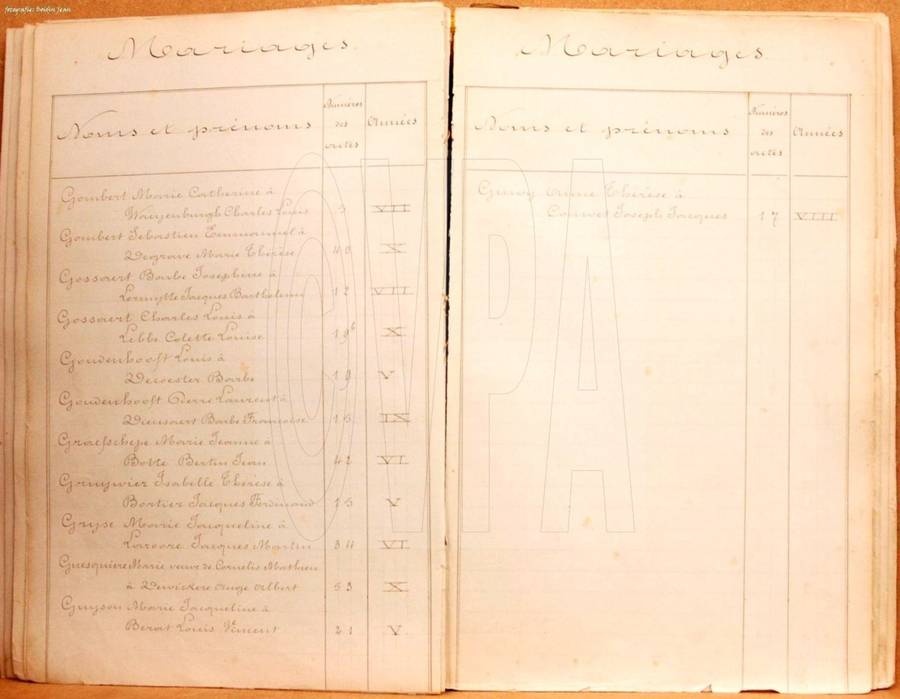 fotografie: Boidin Jean
Mariages.
Noms et prénoms
Numéros des actes
Années
Gombert Marie Catherine à
Charles Louis 5 VII
Gombert Sebastien Emmanuel à
Degrave Marie Thérèse 40 X
Gossaert Barbe Josephine à
Jacques 12 VII
Gossaert Charles Louis à
Libbe Colette Louise 19b X
Goudenhooft Louis à
Decoester Barbe 19 V
Goudenhooft Pierre Laurent à
Barbe Françoise 15 IX
Marie Jeanne à
Botte Bertin Jean 42 VI
Isabelle Thérèse à
Bortier Jacques Ferdinand 15 V
Gryse Marie Jacqueline à
Jacques Martin 34 VI
Guesquiere Marie veuve de Cornelis Mathieu
à Dewickere Ange Albert 53 X
Guyson Marie Jacqueline à
Louis Vincent 21 V
Mariages.
Noms et prénoms
Numéros des actes
Années
Anne Thérèse à
Joseph Jacques 17 VIII
©VPA